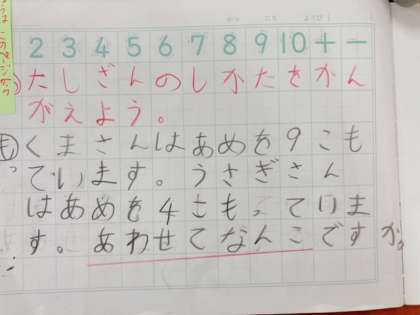 2 3 4 5 6 7 8 9 10 + -
たしざんのしかたをかん
がえよう。
も くまさんはあめを9こも
っています。うさぎさん
はあめを4こもっていま
す。あわせてなんこですか。